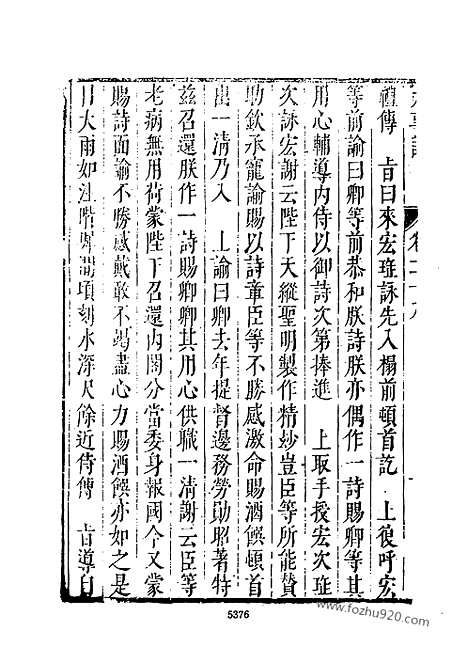 禮傳　旨曰來宏瑤詠先入榻前頓首訖　上復呼宏
等前諭曰卿等前恭和朕詩朕亦偶作一詩賜卿等其
用心輔導內侍以御詩次第捧進　上取手授宏次瑤
次詠宏謝云陛下天縱聖明製作精妙豈臣等所能贊
助欽承寵諭賜以詩章臣等不勝感激命賜酒饌頓首
出一清乃入　上諭曰卿去年提督邊務勞勛昭著特
茲召還朕作一詩賜卿卿其用心供職一清謝云臣等
老病無用荷蒙陛下召還內閣分當委身報國今又蒙
賜詩面諭不勝感戴敢不竭盡心力賜酒饌亦如之是
日大雨如注階墀間頃刻水深尺餘近侍傳　旨導自
5376
www.fozhu920.com